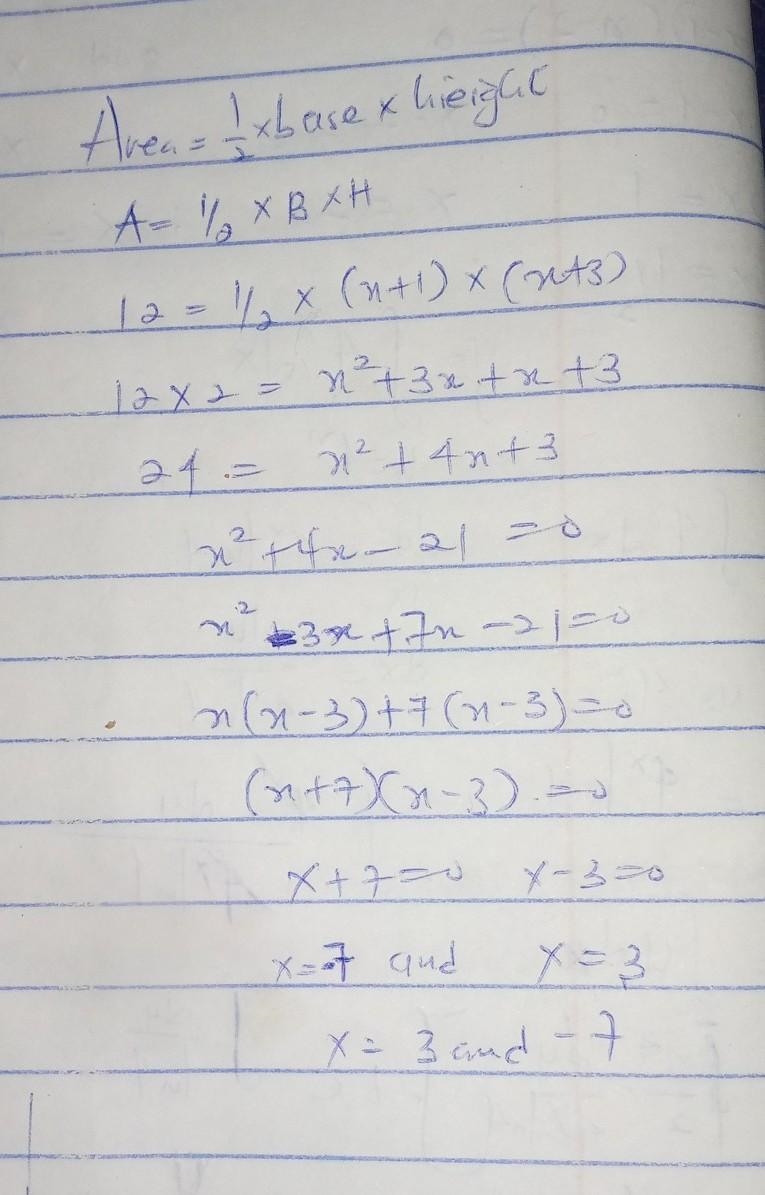 Area = 1/2 × base × hieight
A = 1/2 × B × H
12 = 1/2 × (x+1) × (x+3)
12 × 2 = x² + 3x + x + 3
24 = x² + 4x + 3
x² + 4x - 21 = 0
x² - 3x + 7x - 21 = 0
x(x-3) + 7(x-3) = 0
(x+7)(x-3) = 0
x + 7 = 0 x - 3 = 0
x = -7 and x = 3
x = 3 and -7